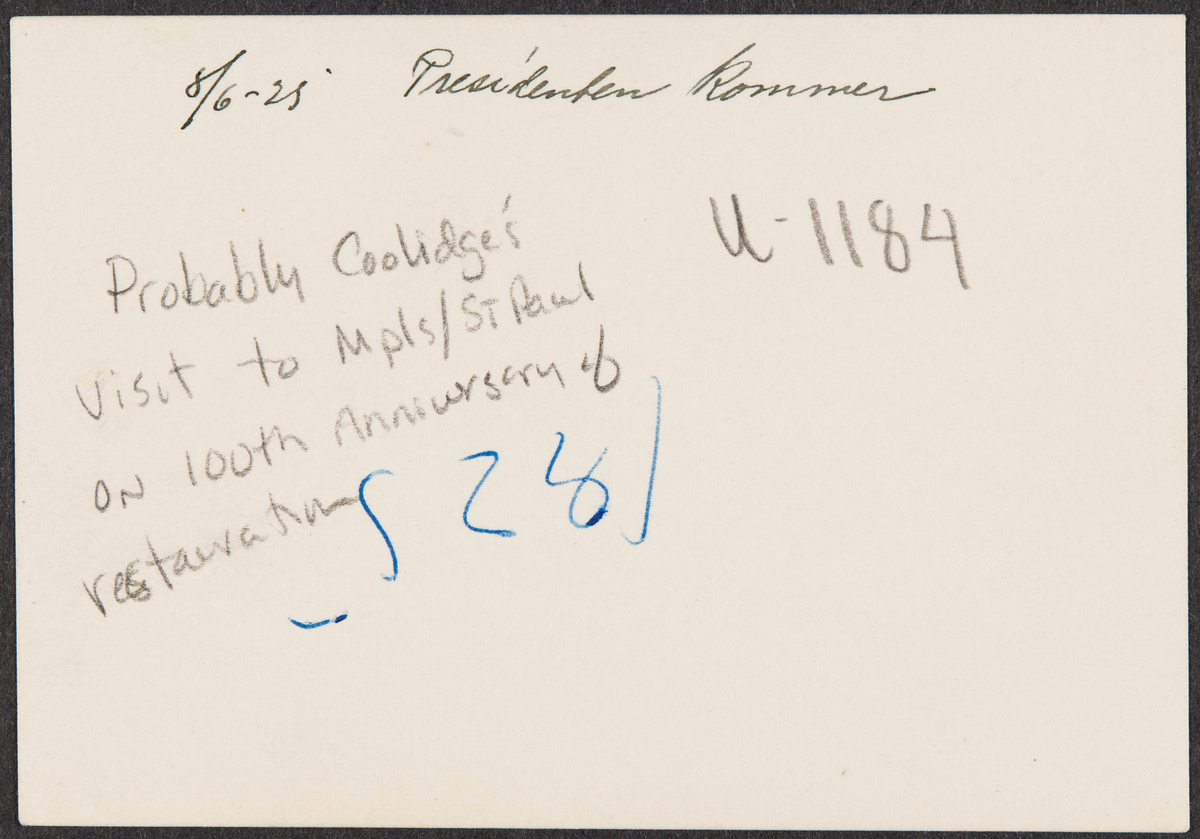 8/6-25 Presidenten Kommer
U-1184
Probably Coolidge's
visit to Mpls/St Paul
on 100th Anniversary of
restauration
28